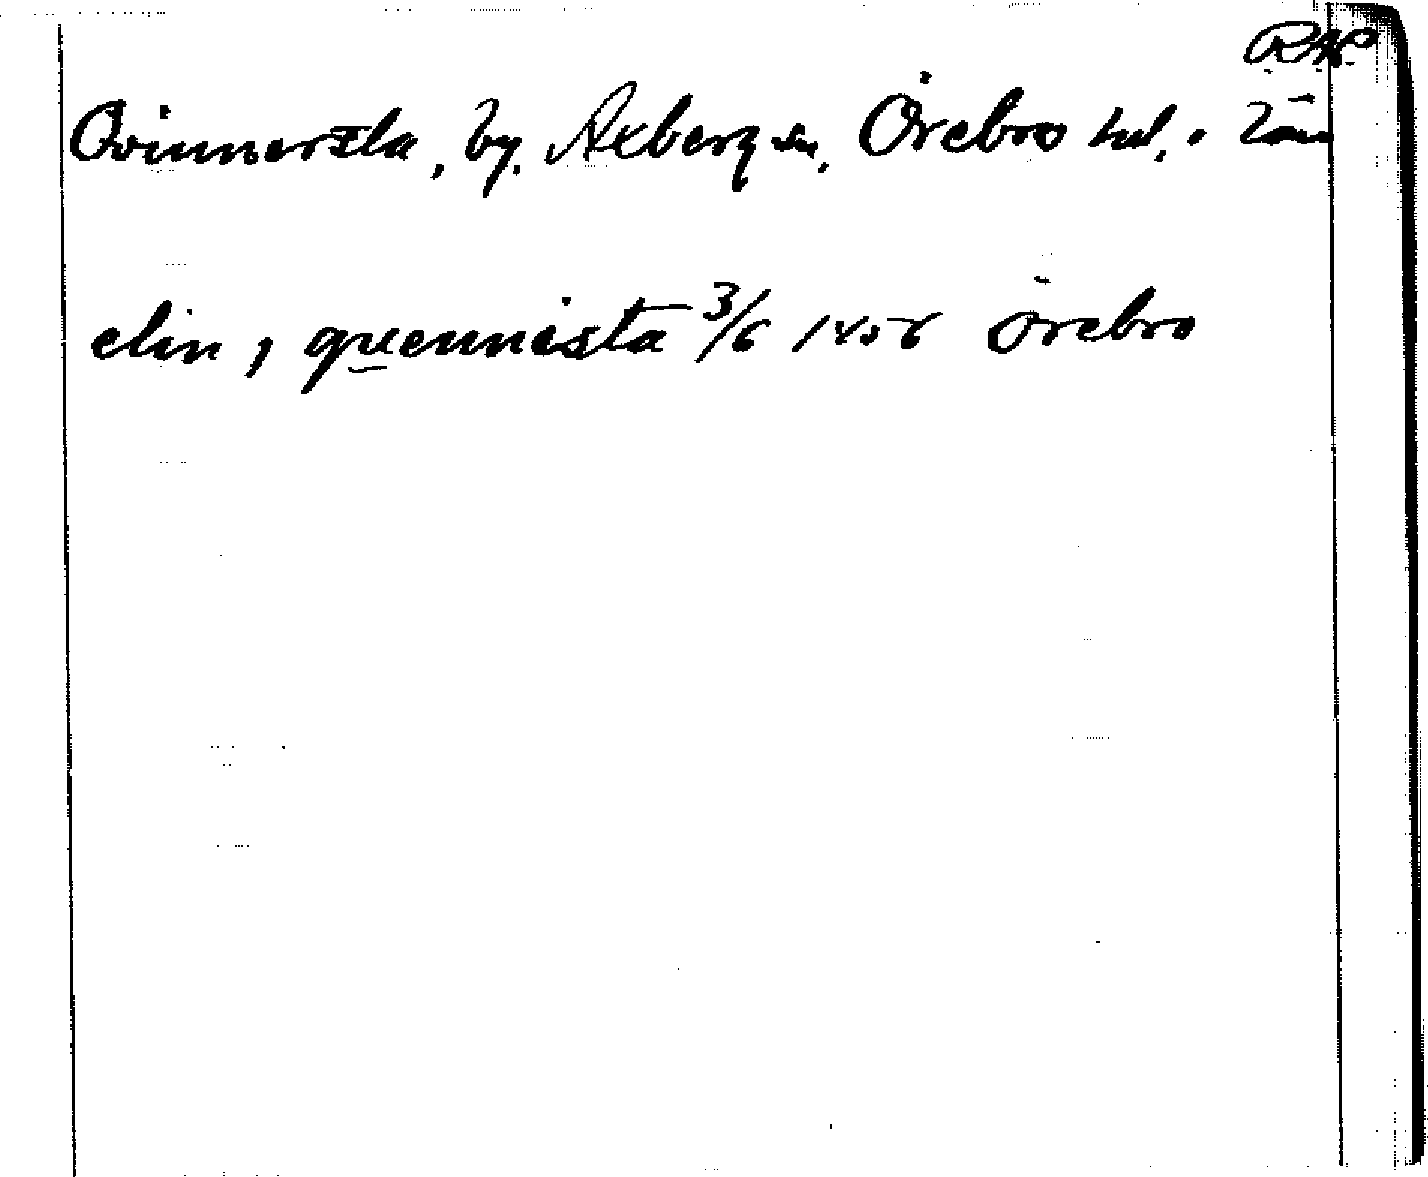 RAP
Qvinnersta, by, Axberg sn, Örebro hd.
elin, quennista 3/6 1456 Örebro